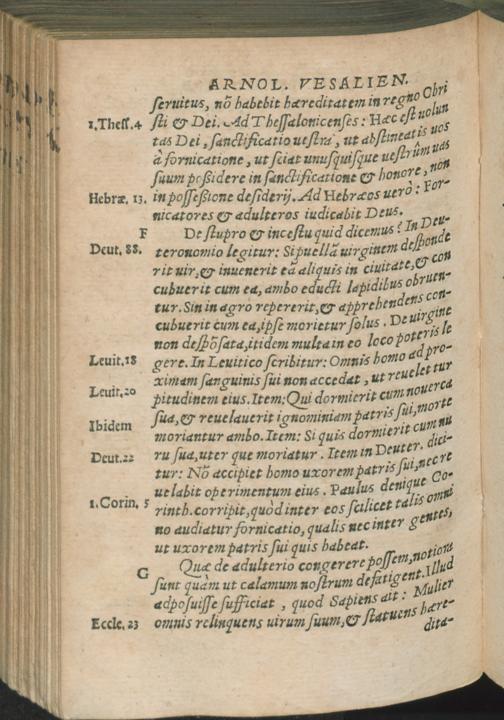 ARNOL. VESALIEN.
seruitus, nõ habebit hæreditatem in regno Chri
1.Thess.4 sti & Dei. Ad Thessalonicenses: Hæc est uolun
tas Dei, sanctificatio uestra, ut abstineatis uos
à fornicatione, ut sciat unusquisque uestrûm uas
suum poßidere in sanctificatione & honore, non
Hebræ. 13. in posseßione desiderij. Ad Hebræos uerò: For-
nicatores & adulteros iudicabit Deus.
F De stupro & incestu quid dicemus? In Deu-
Deut. 88. teronomio legitur: Si puellã uirginem desponde
rit uir, & inuenerit eã aliquis in ciuitate, & con
cubuerit cum ea, ambo educti lapidibus obruen-
tur. Sin in agro repererit, & apprehendens con-
cubuerit cum ea, ipse morietur solus. De uirgine
non despõsata, itidem multa in eo loco poteris le
Leuit.18 gere. In Leuitico scribitur: Omnis homo ad pro-
ximam sanguinis sui non accedat, ut reuelet tur
Leuit.20 pitudinem eius. Item: Qui dormierit cum nouerca
sua, & reuelauerit ignominiam patris sui, morte
Ibidem moriantur ambo. Item: Si quis dormierit cum nu
ru sua, uter que moriatur. Item in Deuter. dici-
Deut.22 tur: Nõ accipiet homo uxorem patris sui, nec re
uelabit operimentum eius. Paulus denique Co-
1.Corin. 5 rinth. corripit, quòd inter eos scilicet talis omni
no audiatur fornicatio, qualis nec inter gentes,
ut uxorem patris sui quis habeat.
G Quæ de adulterio congerere possem, notiora
sunt quàm ut calamum nostrum defatigent. Illud
adposuisse sufficiat, quod Sapiens ait: Mulier
Eccle. 23 omnis relinquens uirum suum, & statuens hære-
dita-